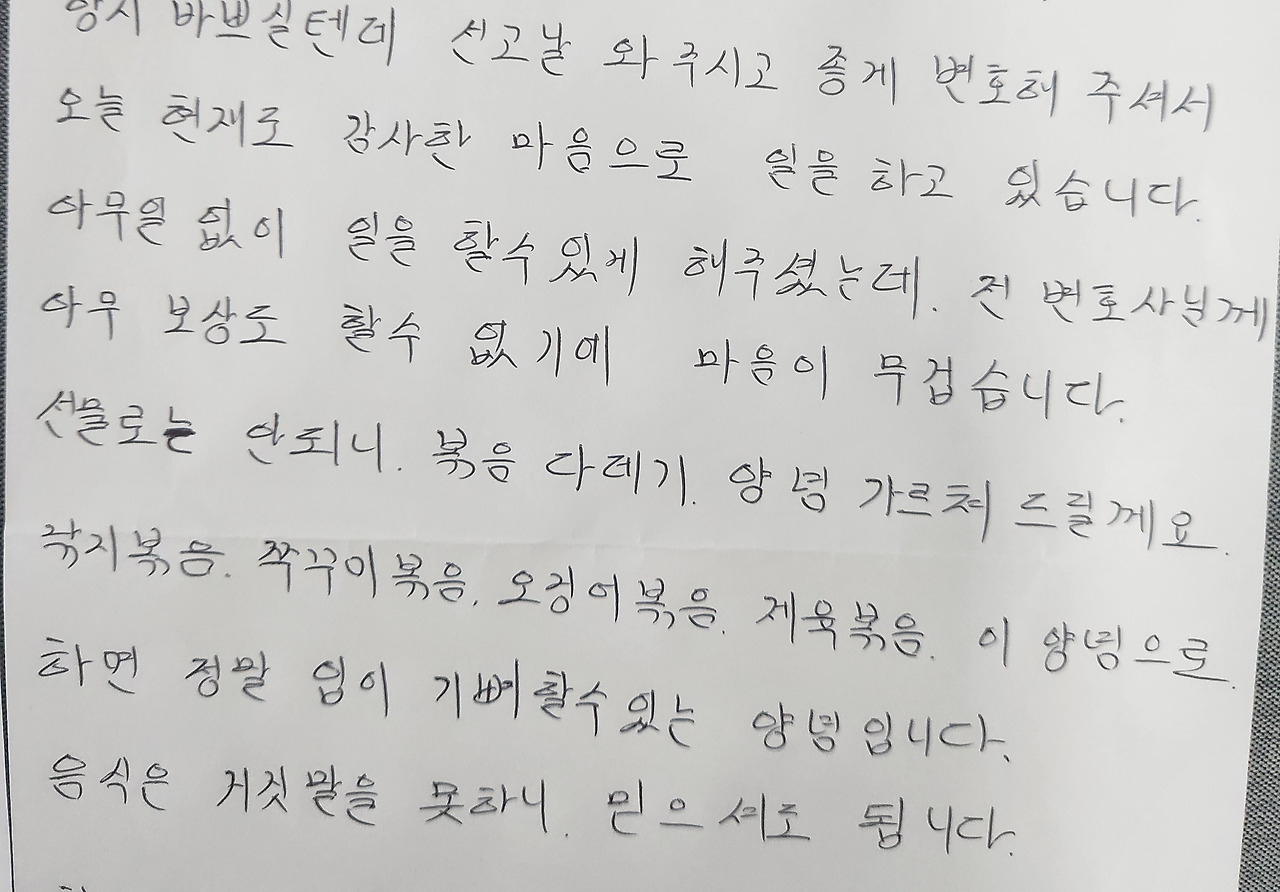 항시 바쁘실텐데 선고날 와주시고 좋게 변호해 주셔서
오늘 현재로 감사한 마음으로 일을 하고 있습니다.
아무일 없이 일을 할수있게 해주셨는데. 전 변호사님께
아무 보상도 할수 없기에 마음이 무겁습니다.
선물로는 안되니. 볶음 다레기. 양념 가르쳐 드릴께요.
낚지볶음. 쭈꾸미볶음. 오징어볶음. 제육볶음. 이 양념으로.
하면 정말 입이 기뻐할수있는 양념입니다.
음식은 거짓말을 못하니. 믿으셔도 됩니다.